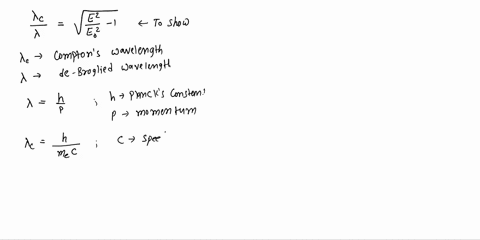 λc/λ = √(E²/E₀² - 1) ← To show
λc → Compton's wavelength
λ → de-Broglied wavelength
λ = h/p ; h → PLANCK's Constan
p → momentum
λc = h/(mₑc) ; c → spee